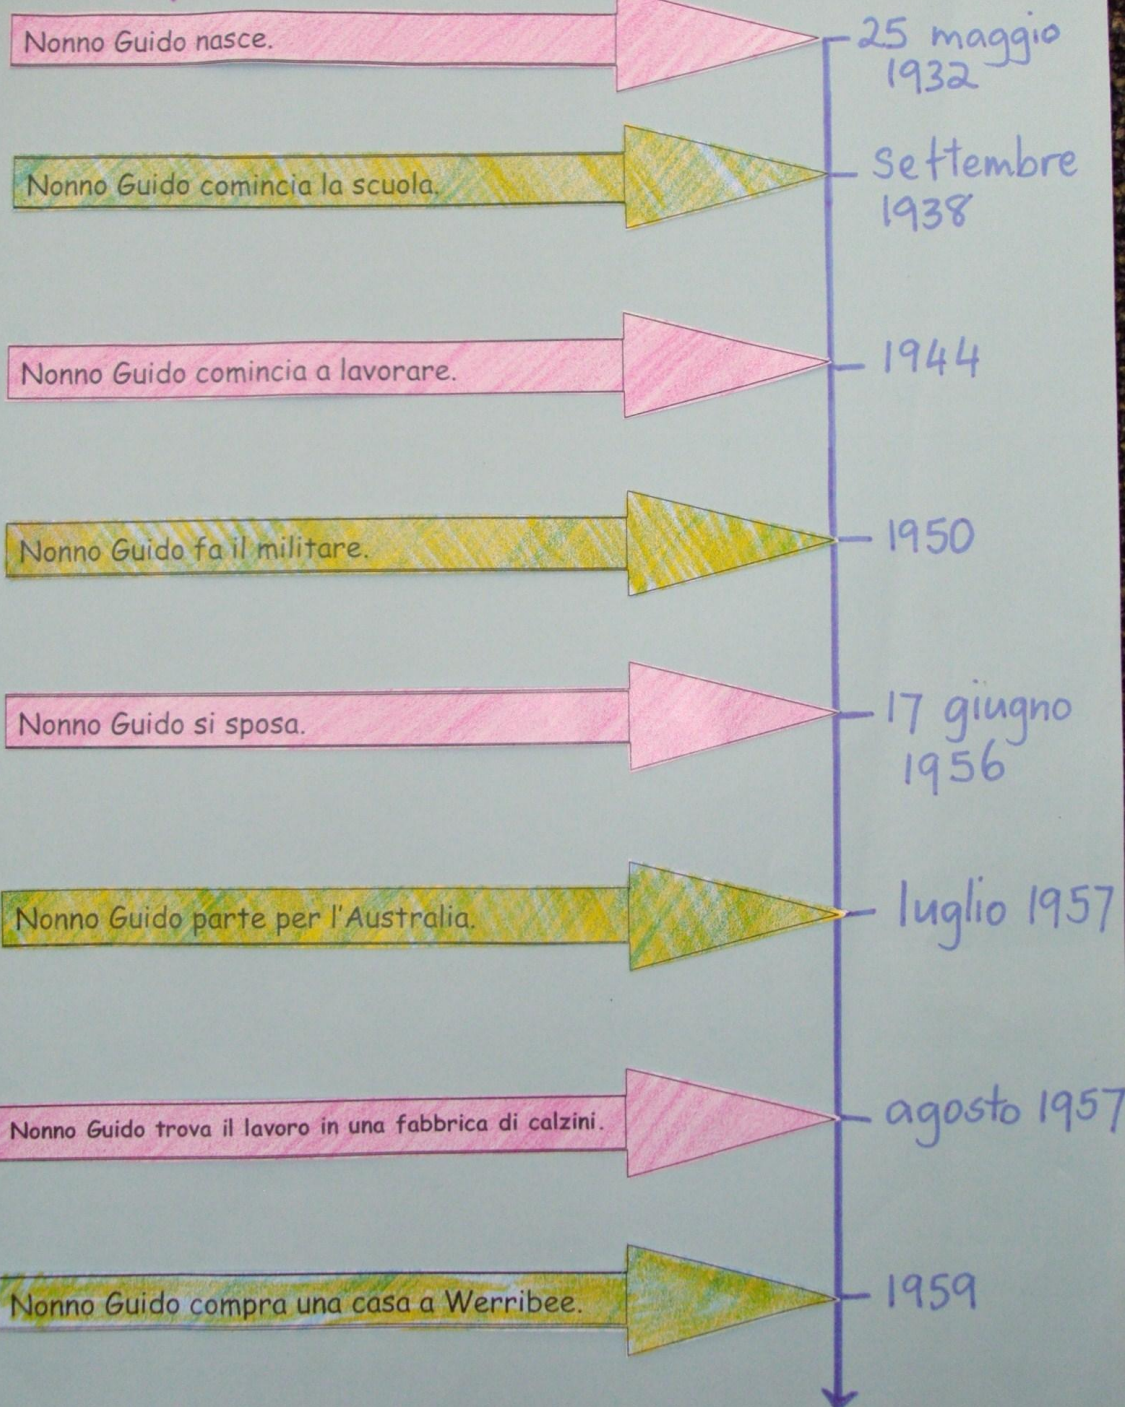 Nonno Guido nasce.
25 maggio
1932
Nonno Guido comincia la scuola.
settembre
1938
Nonno Guido comincia a lavorare.
1944
Nonno Guido fa il militare.
1950
Nonno Guido si sposa.
17 giugno
1956
Nonno Guido parte per l'Australia.
luglio 1957
Nonno Guido trova il lavoro in una fabbrica di calzini.
agosto 1957
Nonno Guido compra una casa a Werribee.
1959